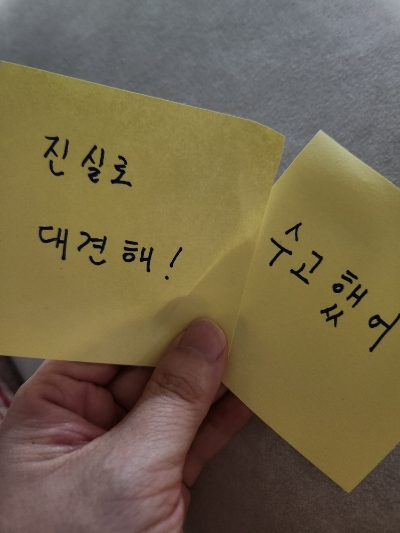 진실로
대견해!
수고했어